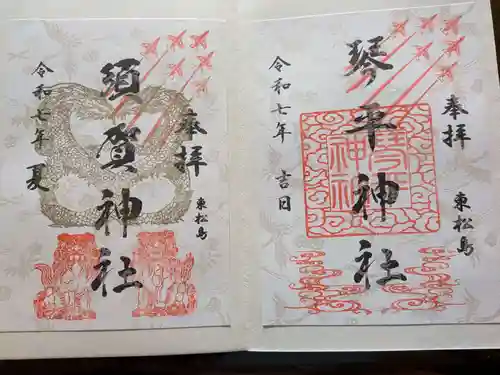 奉拝
東松島
琴平神社
令和七年 吉日
琴平神社
奉拝
東松島
須賀神社
令和七年 夏